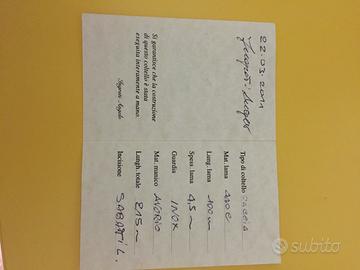 22.03.2011
Si garantisce che la costruzione
di questo coltello è stata
eseguita interamente a mano.
Ingenio Angelo
Tipo di coltello CACCIA
Mat. lama 440 C
Lung. lama 100 mm
Spess. lama 4,5 m
Guardia INOX
Mat. manico AVORIO
Lungh. totale 215 m
Incisione SABATTI L.
subito